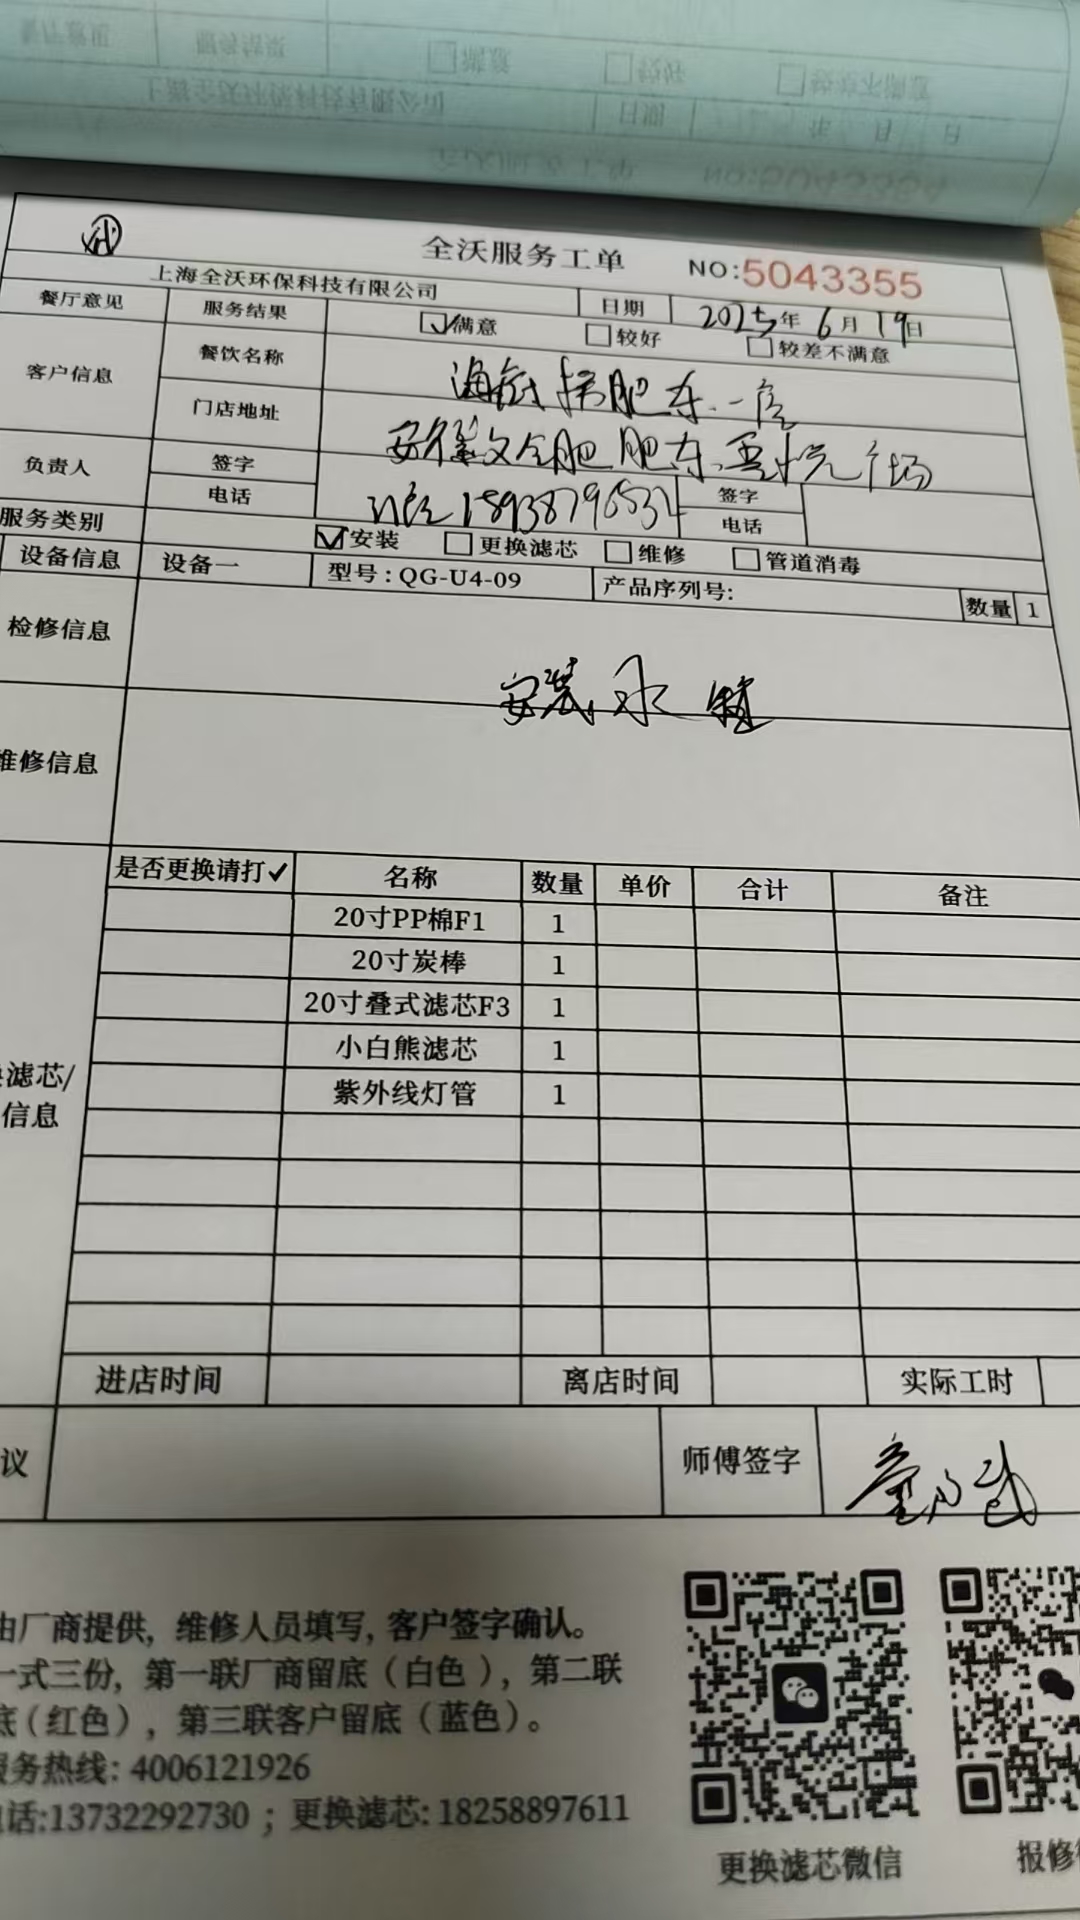 全沃服务工单 NO:5043355
上海全沃环保科技有限公司 日期 2025年6月19日
餐厅意见 服务结果 满意 较好 较差不满意
客户信息 餐饮名称 海底捞肥东一店
门店地址 安徽合肥肥东吾悦广场
负责人 签字 签字
电话 电话
服务类别 安装 更换滤芯 维修 管道消毒
设备信息 设备一 型号:QG-U4-09 产品序列号: 数量 1
检修信息
安装
维修信息
是否更换请打✓ 名称 数量 单价 合计 备注
20寸PP棉F1 1
20寸炭棒 1
20寸叠式滤芯F3 1
小白熊滤芯 1
紫外线灯管 1
滤芯/
信息
进店时间 离店时间 实际工时
议 师傅签字
由厂商提供,维修人员填写,客户签字确认。
一式三份,第一联厂商留底(白色),第二联
底(红色),第三联客户留底(蓝色)。
服务热线:4006121926
话:13732292730;更换滤芯:18258897611
更换滤芯微信 报修